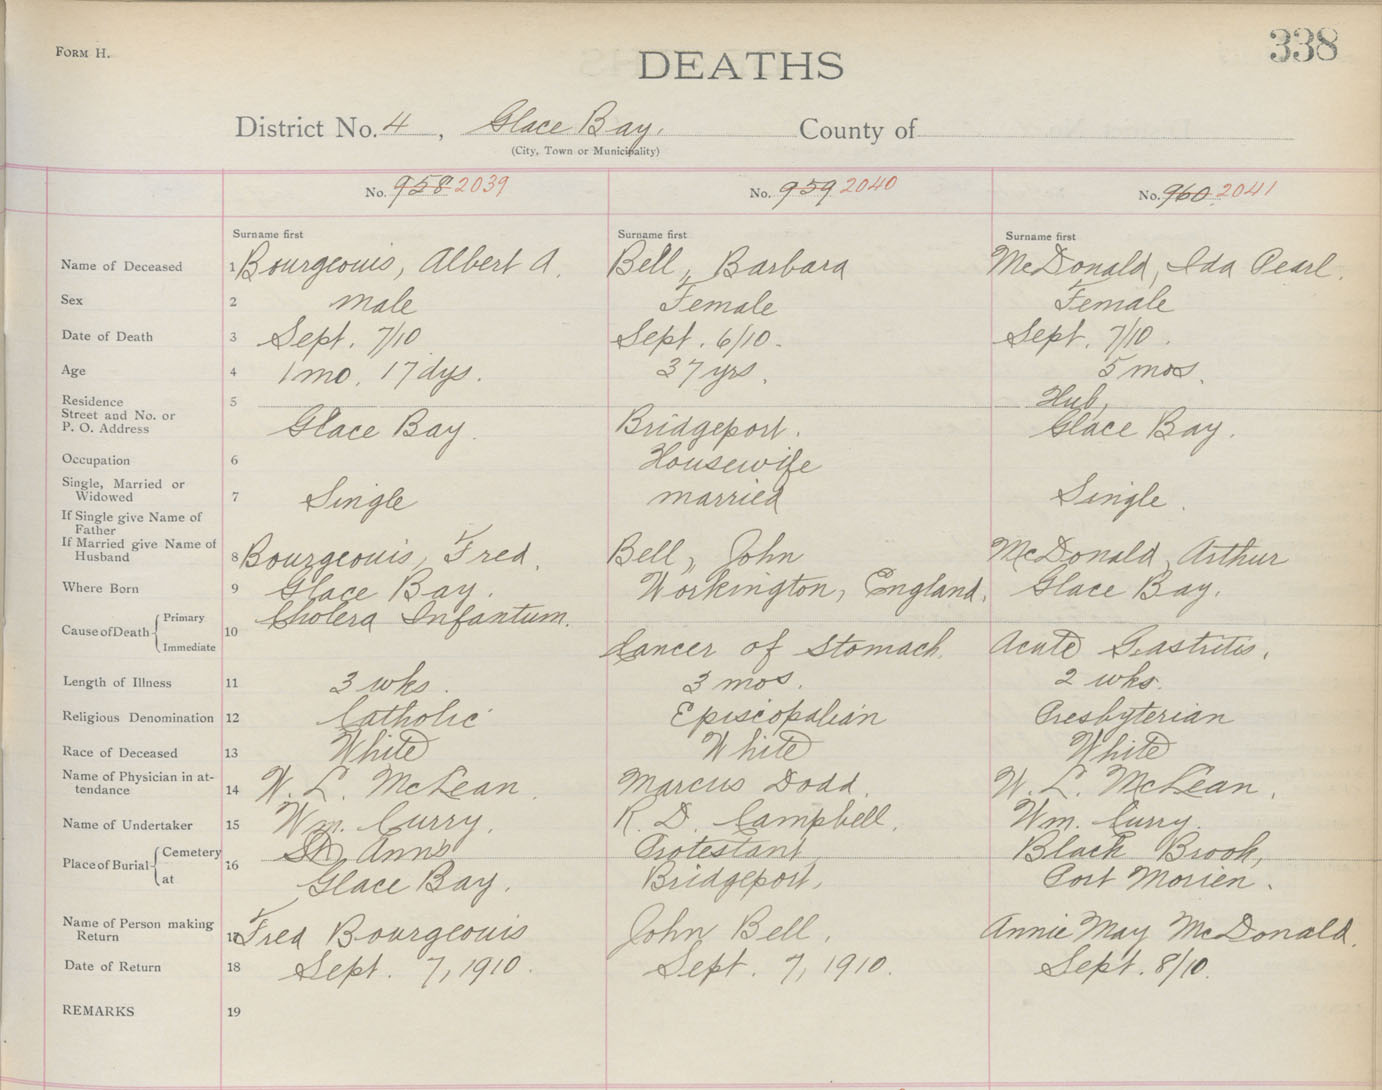 FORM H.
338
DEATHS
District No. 4, Glace Bay. County of
(City, Town or Municipality)
No. 958 2039 No. 959 2040 No. 960 2041
Surname first Surname first Surname first
Name of Deceased 1 Bourgeouis, Albert A. Bell, Barbara McDonald, Ida Pearl.
Sex 2 male Female Female
Date of Death 3 Sept. 7/10 Sept. 6/10. Sept. 7/10.
Age 4 1 mo. 17 dys. 37 yrs. 5 mos.
Residence 5 Hub,
Street and No. or
P. O. Address Glace Bay. Bridgeport. Glace Bay.
Occupation 6 Housewife
Single, Married or
Widowed 7 Single married Single.
If Single give Name of
Father
If Married give Name of
Husband 8 Bourgeouis, Fred. Bell, John McDonald, Arthur
Where Born 9 Glace Bay. Workington, England. Glace Bay.
Cause of Death Primary Cholera Infantum.
10
Immediate Cancer of Stomach. Acute Gastritis.
Length of Illness 11 3 wks. 3 mos. 2 wks.
Religious Denomination 12 Catholic Episcopalian Presbyterian
Race of Deceased 13 White White White
Name of Physician in at-
tendance 14 W. L. McLean. Marcus Dodd. W. L. McLean.
Name of Undertaker 15 Wm. Curry. R. D. Campbell. Wm. Curry.
Place of Burial Cemetery 16 St Anns Protestant Black Brook,
at Glace Bay. Bridgeport. Port Morien.
Name of Person making
Return 17 Fred Bourgeouis John Bell. Annie May McDonald.
Date of Return 18 Sept. 7, 1910. Sept. 7, 1910. Sept. 8/10.
REMARKS 19